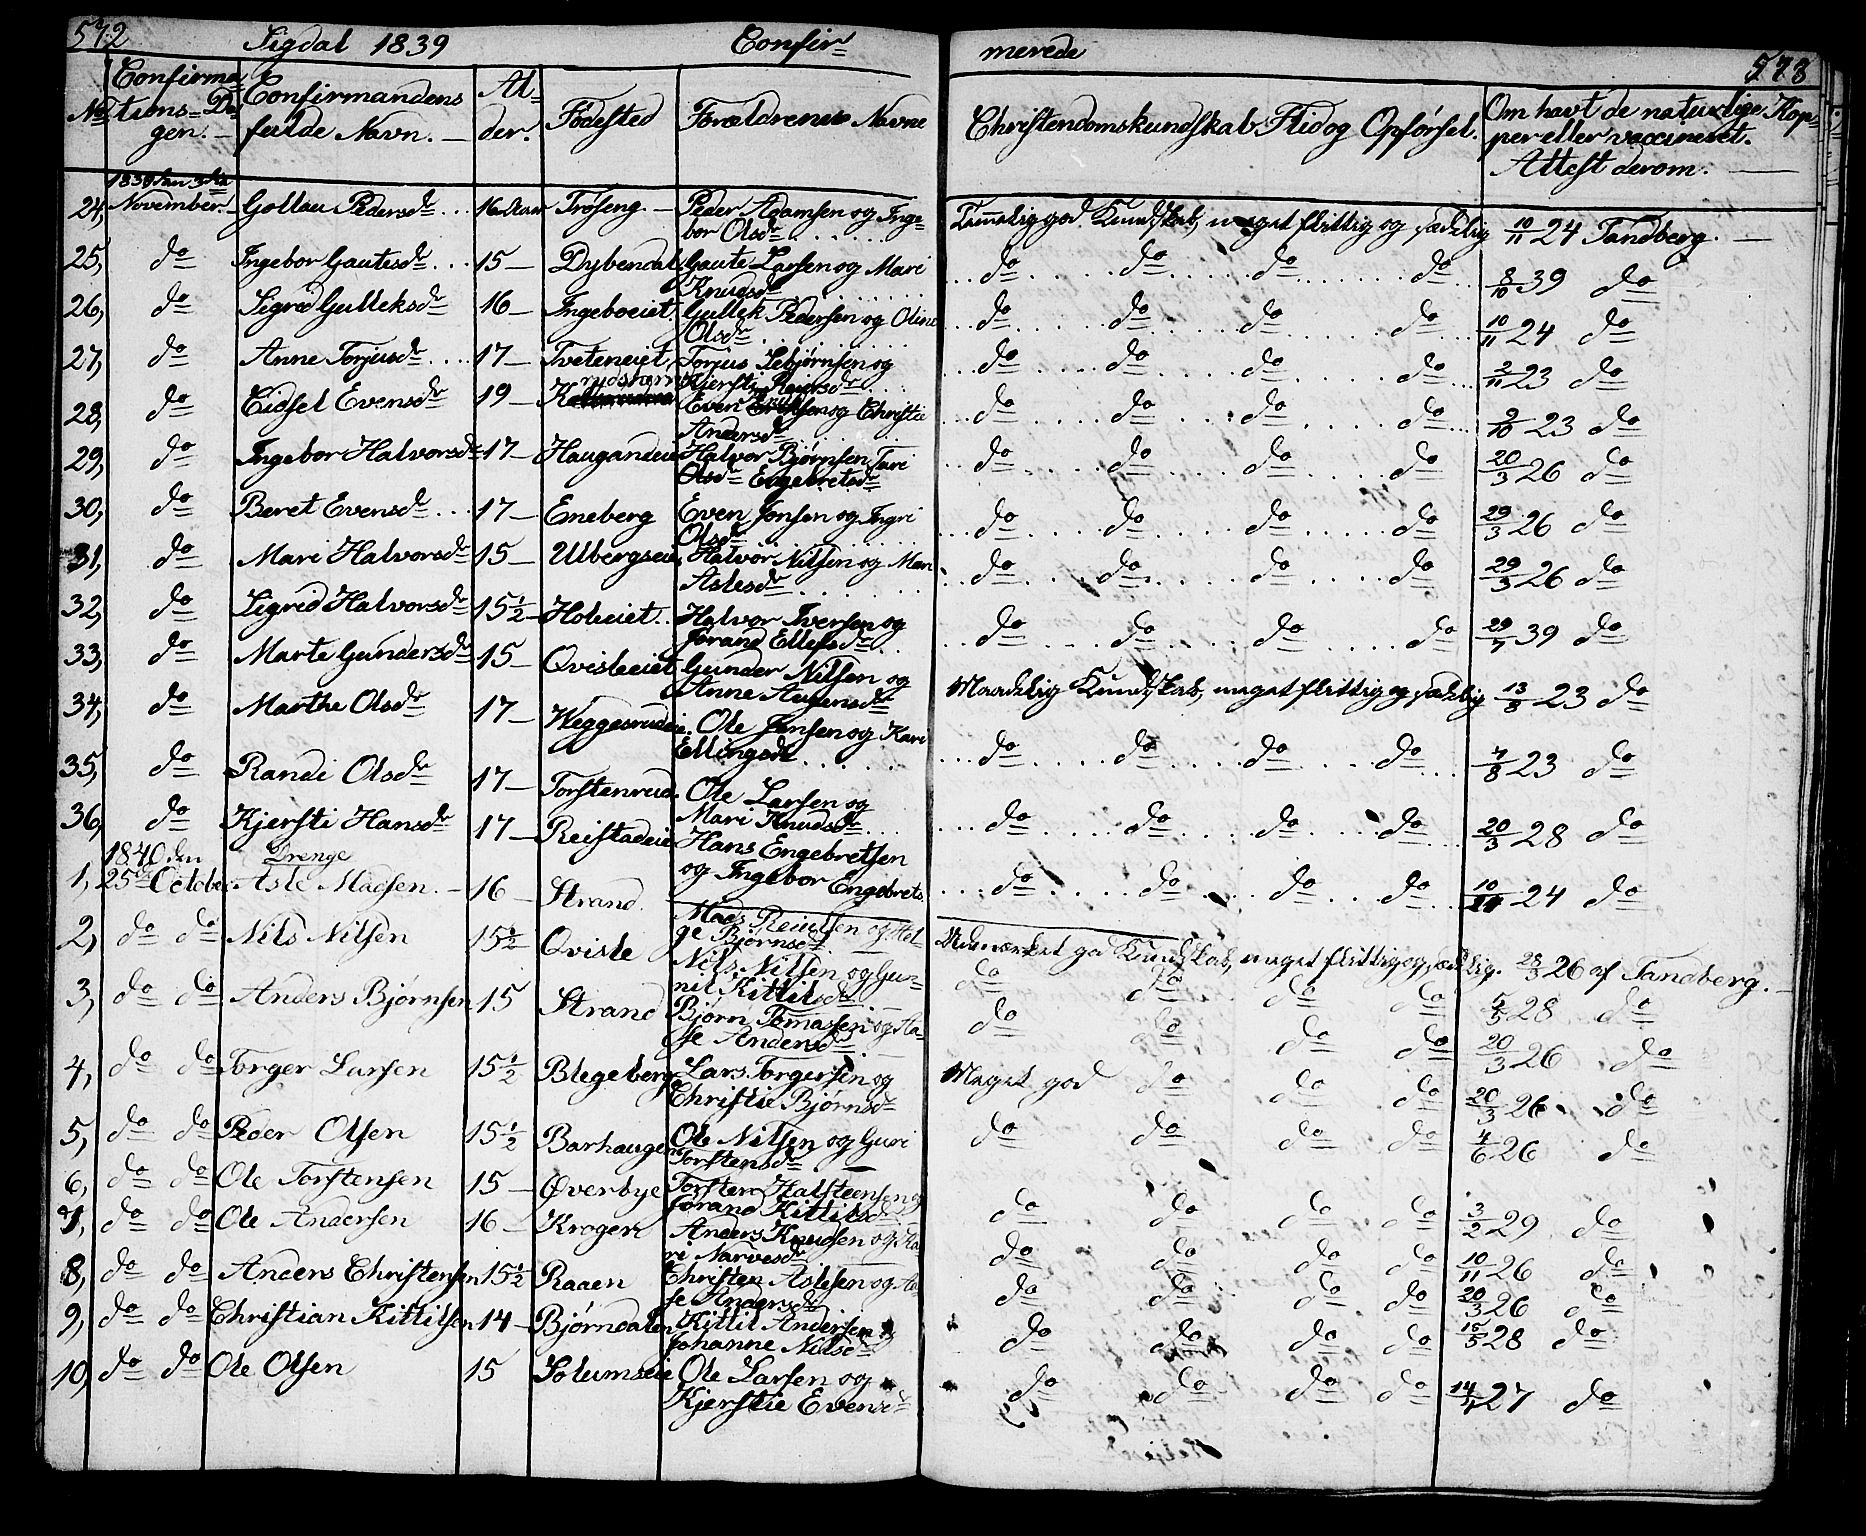 572 Sigdal 1839 Confir merede 573
No Confirmations-Dagen. Confirmandens fulde Navn. Alder. Fødested Forældrenes Navne Christendomskundskab. Flid og Opførsel. Om havt de naturlige Kopper eller vaccineret. Attest derom.
1839 den 3die
24, November. Gollau Pedersdr 16 Aar Trøseng Peder Adamsen og Ingebor Olsdr Temmelig god Kundskab, meget flittig og sædelig 10/11 24 Tandberg.
25, do Ingebor Gautesdr 15 Dybendal Gaute Larsen og Mari Knudsdr do do do do 8/10 39 do
26, do Sigrid Gulleksdr 16 Ingeboeiet Gullek Pedersen og Oline Olsdr do do do do 10/11 24 do
27, do Anne Torjusdr 17 Tveteneiet Torjus Sebjørnsen og Kjersti Reiersdr do do do do 2/11 23 do
28, do Eidsel Evensdr 19 Even og Christie Andersdr do do do do 9/10 23 do
29, do Ingebor Halvorsdr 17 Haugandeie Halvor Bjørnsen Turi Olsdr Engebretsdr do do do do 20/3 26 do
30, do Beret Evensdr 17 Eneberg Even Jonsen og Ingri Olsdr do do do do 29/3 26 do
31, do Mari Halvorsdr 15 Ulbergseie Halvor Nilsen og Mari Aslesdr do do do do 29/3 26 do
32, do Sigrid Halvorsdr 15½ Holieiet Halvor Iversen og Jørand Ellefsdr do do do do 29/7 39 do
33, do Marte Gundersdr 15 Qvisleeiet Gunder Nilsen og Anne Aslesensdr Maadelig Kundskab, meget flittig og sædelig 13/8 23 do
34, do Marthe Olsdr 17 Weggesrudeie Ole Jensen og Kari Ellingsdr do do do do 7/8 23 do
35, do Randi Olsdr 17 Torstenrud Ole Larsen og Mari Knudsdr do do do do 20/3 28 do
36, do Kjersti Hansdr 17 Reistadeie Hans Engebretsen og Ingebor Engebrets do do do do 10/11 24 do
1840 den Drenge
1, 25de October Asle Madsen 16 Strand Mads Reiersen og Helge Bjørnsdr Udmærket god Kundskab, meget flittig og sædelig. 28/3 26 af Tandberg.
2, do do Nils Nilsen 15½ Qvisle Nils Nilsen og Gunnil Kittilsdr do do do do 5/5 28 do
3, do do Anders Bjørnsen 15 Strand Bjørn Tomassen og Aase Andersdr do do do do 20/3 26 do
4, do do Torger Larsen 15½ Blegeberg Lars Torgersen og Christie Bjørnsdr Meget god do do do 20/3 26 do
5, do do Peder Olsen 15½ Barhaugen Ole Nilsen og Guri Torstensdr do do do do 4/6 26 do
6, do do Ole Torstensen 15 Øverbye Torsten Halsteensen og Jørand Kittilsdr do do do do 3/2 29 do
7, do do Ole Andersen 16 Krogen Anders Knudsen og Kari Narvesdr do do do do 10/11 26 do
8, do do Anders Christensen 15½ Raaen Christen Aslesen og Aase Andersdr do do do do 20/3 26 do
9, do do Christian Kittilsen 14 Bjørndalen Kittil Andersen og Johanne Nilsdr do do do do 15/5 28 do
10, do do Ole Olsen 15 Solumseie Ole Larsen og Kjerstie Evensdr do do do do 14/7 27 do